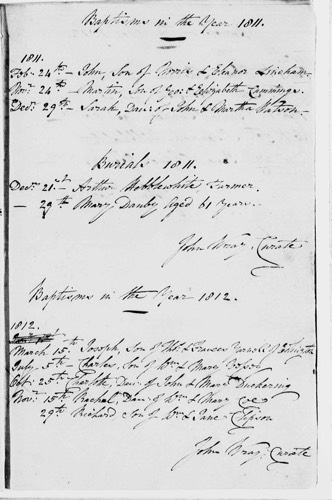 Baptisms in the Year 1811.
1811.
Feb. 24th - John, Son of & Elinor
Novr. 24th - Martin, Son of Geo: & Elizabeth Cummings
Decr. 29th - Sarah, Daur: of John & Martha Watson
Burials 1811.
Decr. 21st Arthur Hebblewhite Farmer.
- 29th Mary Danby aged 61 Years.
John Wray, Curate
Baptisms in the Year 1812.
1812.
March 15th Joseph, Son of Thos. & Frances of
July 5th Charles, Son of Wm. & Mary
Octr. 25th Daur: of John & Mary Duckering
Novr. 15th Rachel, Daur: of Wm. & Mary
29th Richard Son of Wm. & Jane
John Wray, Curate